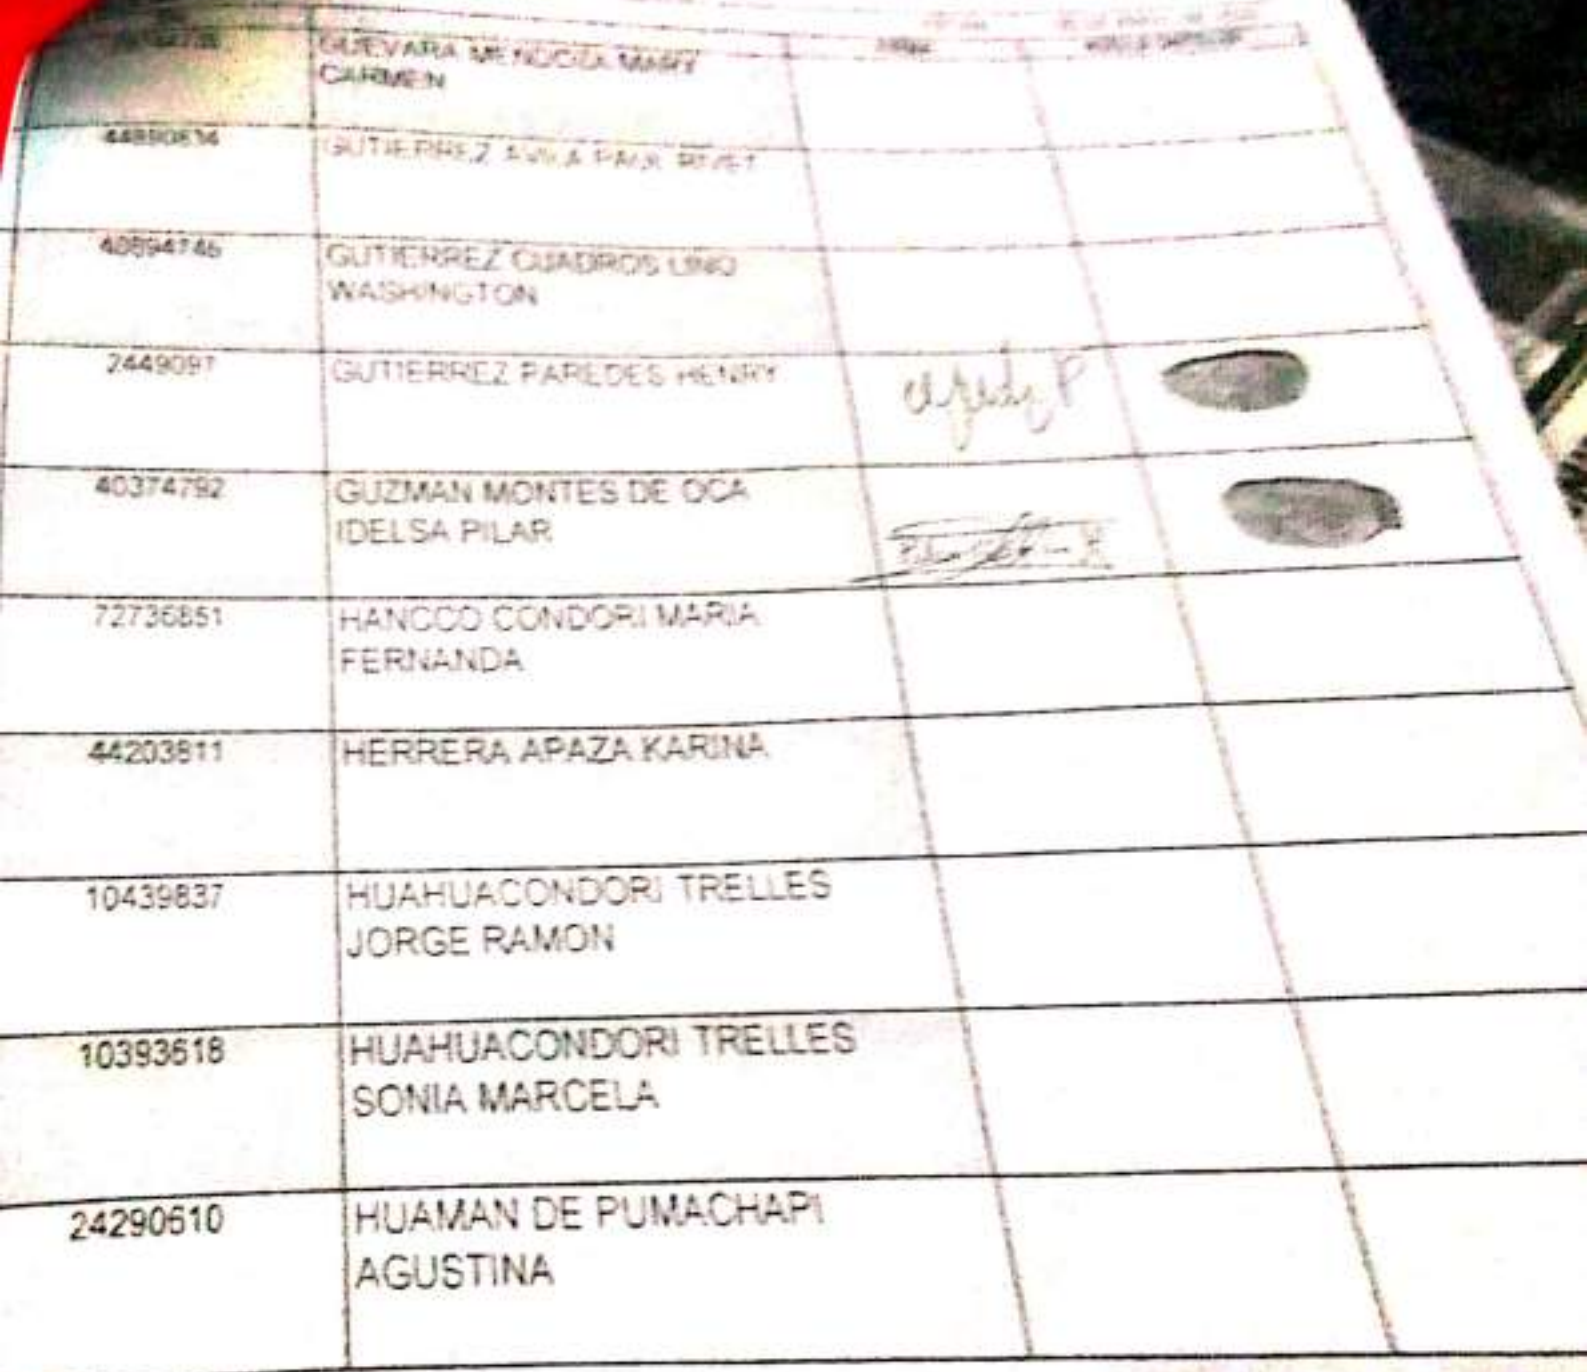 FIRMA
GUEVARA MENDOZA MARY
CARMEN
GUTIERREZ AVILA PAUL RIVET
GUTIERREZ CUADROS LINO
WASHINGTON
2449097 GUTIERREZ PAREDES HENRY
40374792 GUZMAN MONTES DE OCA
IDELSA PILAR
72736851 HANCCO CONDORI MARIA
FERNANDA
44203811 HERRERA APAZA KARINA
10439837 HUAHUACONDORI TRELLES
JORGE RAMON
10393618 HUAHUACONDORI TRELLES
SONIA MARCELA
24290610 HUAMAN DE PUMACHAPI
AGUSTINA